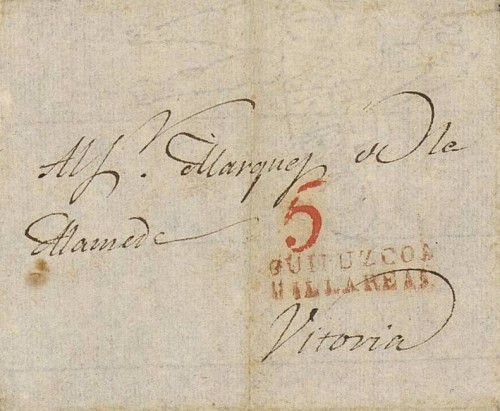 Al Sr. Marques de la
Alameda
5
GUIPUZCOA
VILLAREAL
Vitoria